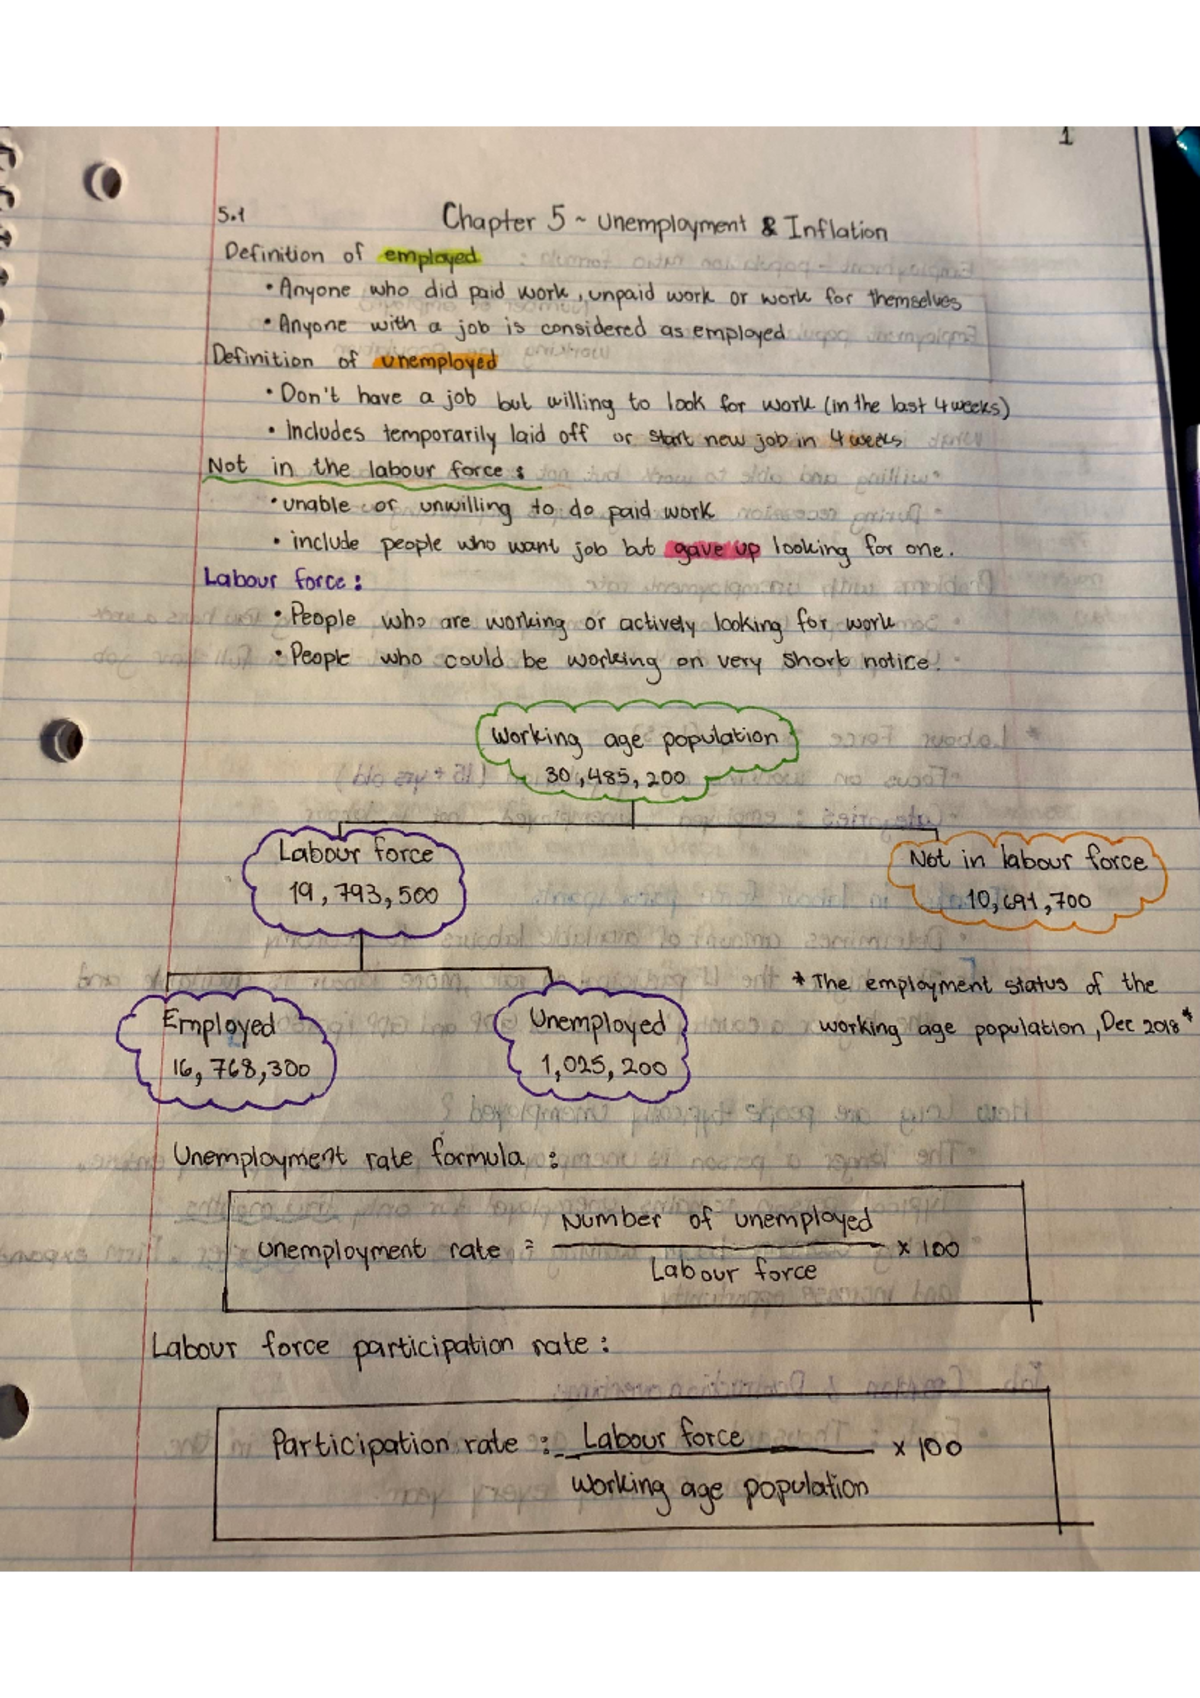 1
5.1 Chapter 5 ~ Unemployment & Inflation
Definition of employed
• Anyone who did paid work, unpaid work or work for themselves
• Anyone with a job is considered as employed
Definition of unemployed
• Don't have a job but willing to look for work (in the last 4 weeks)
• Includes temporarily laid off or start new job in 4 weeks
Not in the labour force :
• unable or unwilling to do paid work
• include people who want job but gave up looking for one.
Labour force :
• People who are working or actively looking for work
• People who could be working on very short notice.
Working age population
30,485,200
Labour force
19,793,500
Not in labour force
10,691,700
Employed
16,768,300
Unemployed
1,025,200
* The employment status of the
working age population, Dec 2018 *
Unemployment rate formula :
Unemployment rate = Number of unemployed
Labour force
x 100
Labour force participation rate :
Participation rate : Labour force
working age population
x 100